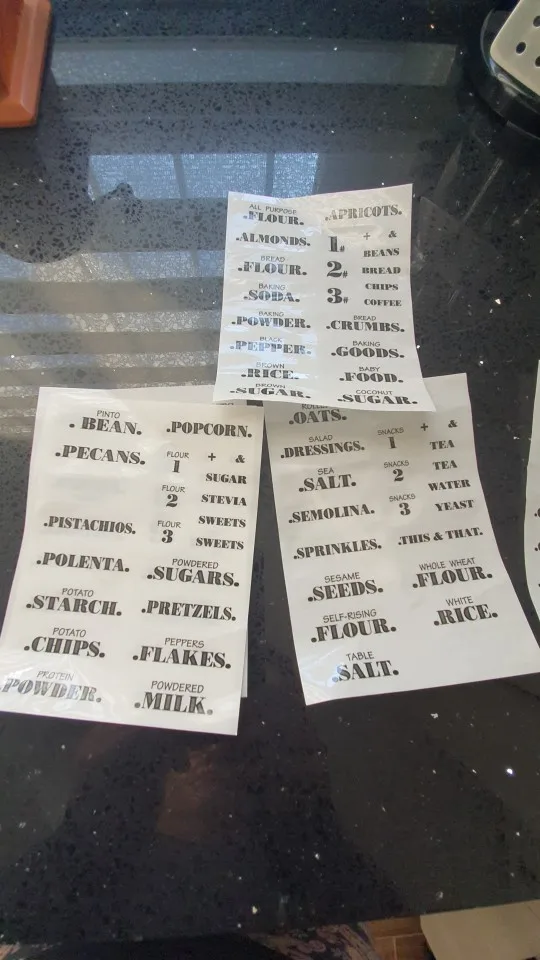 ALL PURPOSE
.FLOUR.
.ALMONDS.
BREAD
.FLOUR.
BAKING
.SODA.
BAKING
.POWDER.
BLACK
.PEPPER.
BROWN
.RICE.
BROWN
.SUGAR.
.APRICOTS.
1# + &
BEANS
2# BREAD
CHIPS
3# COFFEE
BREAD
.CRUMBS.
BAKING
.GOODS.
BABY
.FOOD.
COCONUT
.SUGAR.
PINTO
.BEAN.
.PECANS.
.PISTACHIOS.
.POLENTA.
POTATO
.STARCH.
POTATO
.CHIPS.
PROTEIN
POWDER.
.POPCORN.
FLOUR
1 + &
SUGAR
FLOUR
2 STEVIA
SWEETS
FLOUR
3 SWEETS
POWDERED
.SUGARS.
.PRETZELS.
PEPPERS
.FLAKES.
POWDERED
.MILK.
.OATS.
SALAD
.DRESSINGS.
SEA
.SALT.
.SEMOLINA.
.SPRINKLES.
SESAME
.SEEDS.
SELF-RISING
.FLOUR.
TABLE
.SALT.
SNACKS
1 + &
TEA
SNACKS
2 TEA
WATER
SNACKS
3 YEAST
.THIS & THAT.
WHOLE WHEAT
.FLOUR.
WHITE
.RICE.